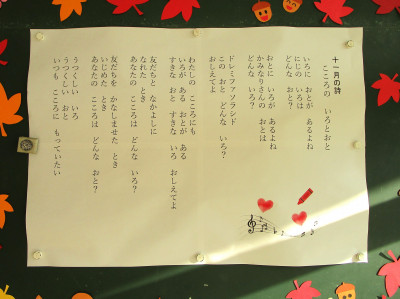 十一月の詩
こころの いろとおと
いろに おとが あるよね
にじの いろは
どんな おと?
おとに いろが あるよね
かみなりさんの おとは
どんな いろ?
ドレミファソラシド
この おと どんな いろ?
おしえてよ
わたしの こころにも
いろが ある おとが ある
すきな おと すきな いろ おしえてよ
友だちと なかよしに
なれた とき
あなたの こころは どんな いろ?
友だちを かなしませた とき
いじめた とき
あなたの こころは どんな おと?
うつくしい いろ
うつくしい おと
いつも こころに もっていたい